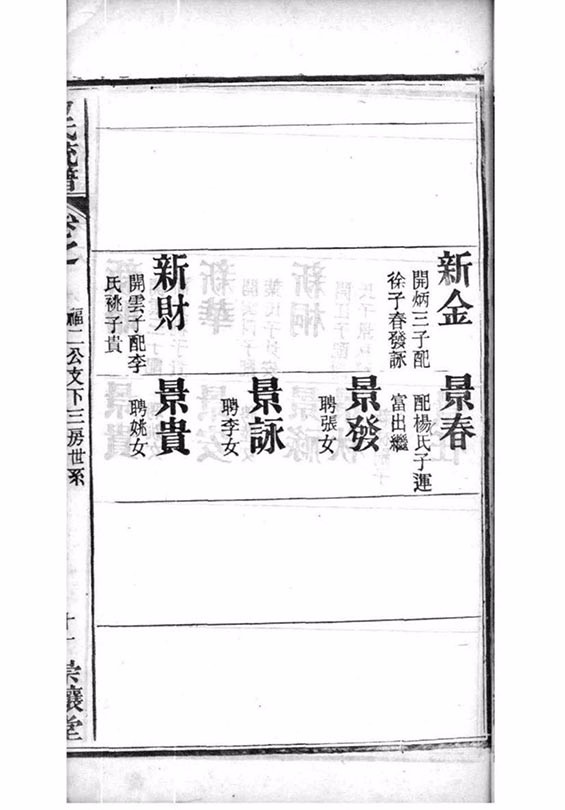 新金
開炳三子配
徐子春發詠
新財
開雲子配李
氏祧子貴
景春
配楊氏子運
富出繼
景發
聘張女
景詠
聘李女
景貴
聘姚女
氏統譜
卷之
福二公支下三房世系
十一
堂